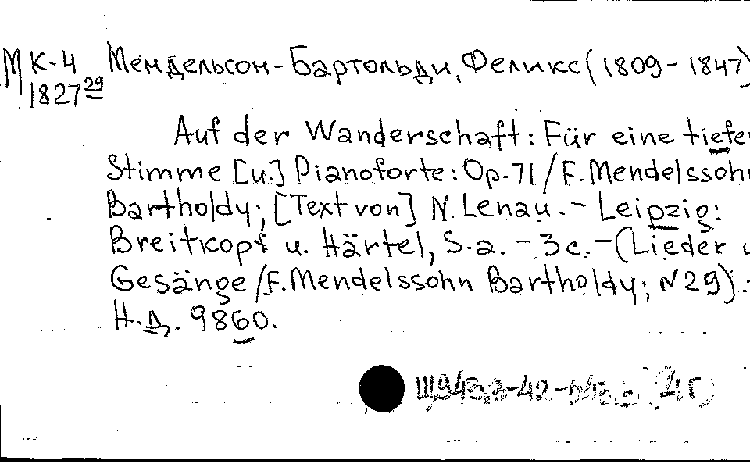 М К-4 Мендельсон-Бартольди, Феликс (1809-1847)
1827 29
Auf der Wanderschaft: Für eine tiefe
Stimme [u.] Pianoforte: Op.71 / F. Mendelssohn
Bartholdy; [Text von] N. Lenau. - Leipzig:
Breitkopf u. Härtel, S.a. - 3 c. - (Lieder u
Gesänge / F. Mendelssohn Bartholdy; N 29). -
Н.Д. 9860.